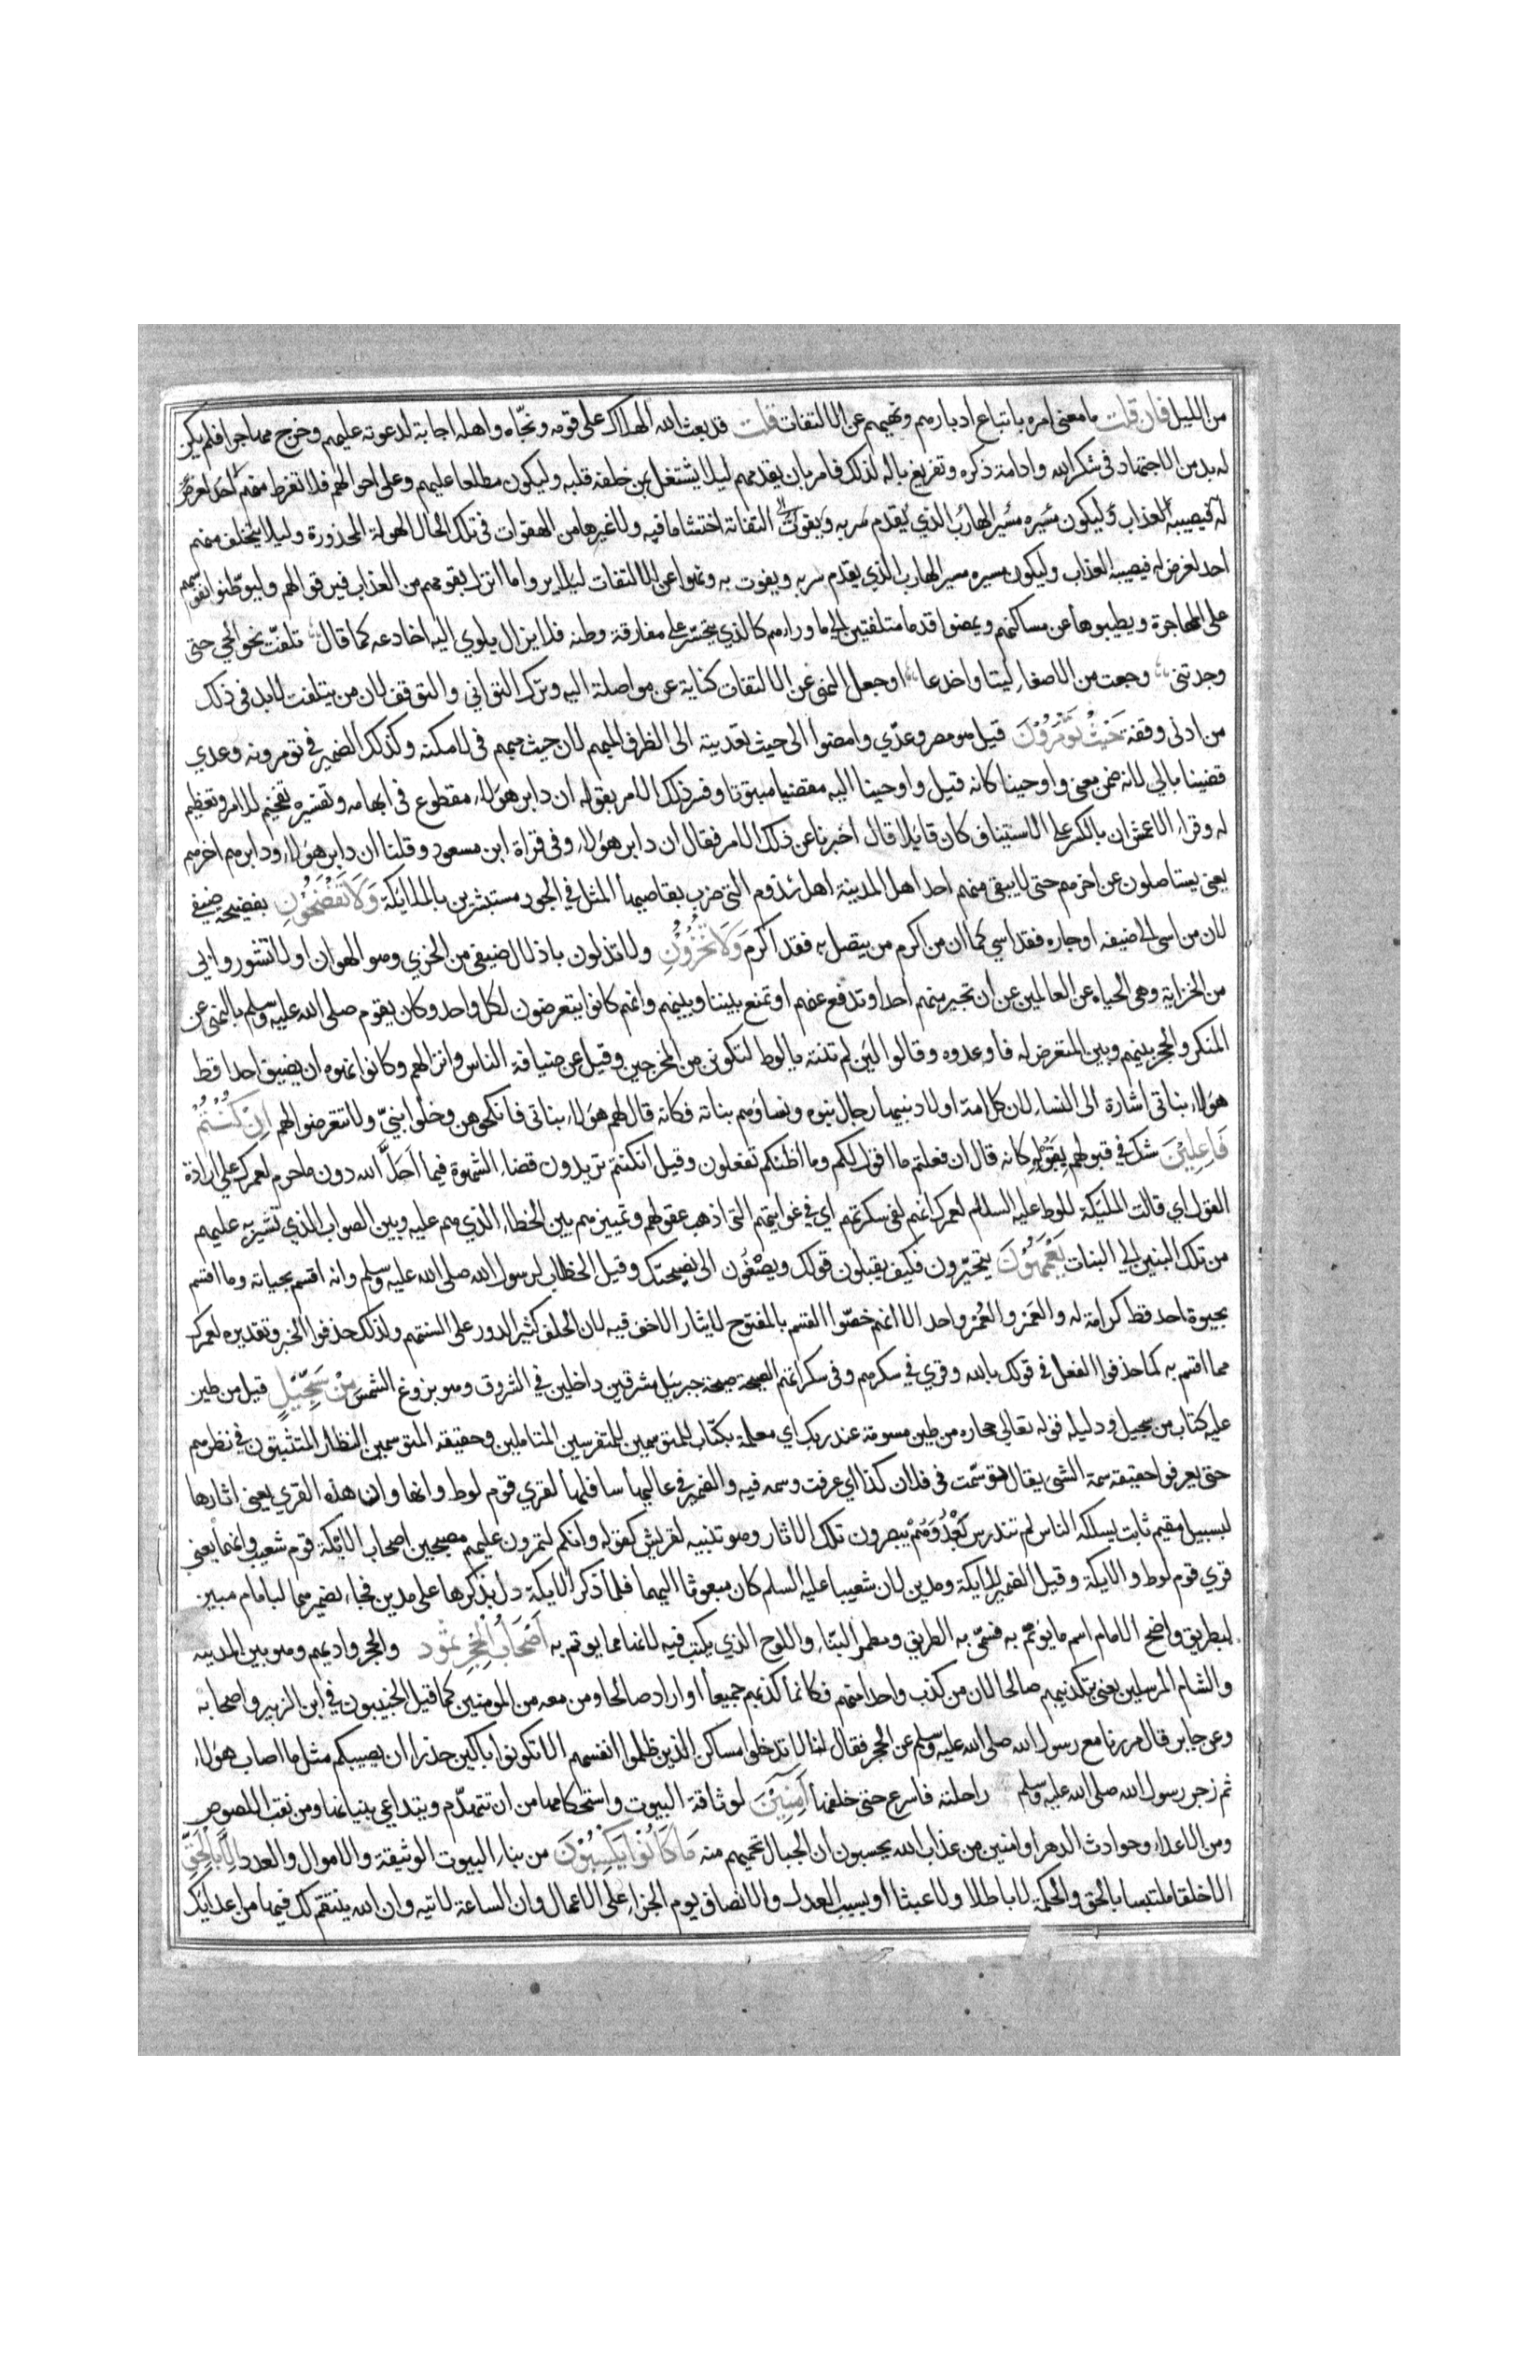 من الليل فان قلت ما معنى امره باتباع ادبارهم ونهيهم عن الالتفات قلت قد بعث الله الهلاك على قومه ونجّاه واهله اجابة لدعوته عليهم وخرج مهاجرا فلم يكن
له بد من الاجتهاد في شكر الله وادامة ذكره وتفريغ باله لذلك فامر بان يقدمهم ليلا يشتغل بمن خلفه قلبه وليكون مطلعا عليهم وعلى احوالهم فلا تفرط منهم احد لغرض
له فيصيبه العذاب وليكون مسيره مسير الهارب الذي يقدم سربه ويفوت التفاتة احتشاما فيه ولا غيرها من الهفوات في تلك الحال المهولة المحذورة وليلا يتخلف منهم
احد لغرض له فيصيبه العذاب وليكون مسيره مسير الهارب الذي يقدم سربه ويفوت به ونهوا عن الالتفات ليلا يروا ما انزل بقومهم من العذاب فيرقوا لهم وليوطنوا نفوسهم
على المهاجرة ويطيبوها عن مساكنهم ويمضوا قدما متلفتين الى ما وراءهم كالذي يتحسر على مفارقة وطنه فلا يزال يلوي اليه اخادعه كما قال تلفّت نحو الحي حتى
وجدتني وجعت من الاصغاء ليتا واخدعا او جعل النهي عن الالتفات كناية عن مواصلة اليه وترك التواني والتوقف لان من يتلفت لا بد في ذلك
من ادنى وقفة حَيْثُ تُؤْمَرُوْنَ قيل هو مصر وعدّي وامضوا الى حيث تعديته الى الظرف المبهم لان حيث مبهم في الامكنة وكذلك الضمير في تؤمرونه وعدي
قضينا بالى لانه ضمن معنى واوحينا كانه قيل واوحينا اليه مقضيا مبتوتا وفسر ذلك الامر بقوله ان دابر هؤلاء مقطوع في ابهامه وتفسيره تفخيم للامر وتعظيم
له وقراء الاعمش ان بالكسر على الاستيناف كان قايلا قال اخبرنا عن ذلك الامر فقال ان دابر هؤلاء وفي قراة ابن مسعود وقلنا ان دابر هؤلاء ودابرهم اخرهم
يعني يستاصلون عن اخرهم حتى لا يبقى منهم احد اهل المدينة اهل سذوم التي ضرب بقاضيها المثل في الجود مستبشرين بالملايكة وَلَا تَفْضَحُوْنِ بفضيحة ضيفي
لان من اسي الى ضيفه او جاره فقد اسي كما ان من اكرم من يتصل به فقد اكرم وَلَا تُخْزُوْنِ ولا تذلون باذلال ضيفي من الخزي وهو الهوان او لا تشوروا بي
من الخزاية وهي الحياء عن العالمين عن ان تجير منهم احدا او تدفع عنهم او تمنع بيننا وبينهم وانهم كانوا يتعرضون لكل واحد وكان يقوم صلى الله عليه وسلم بالنهي عن
المنكر والحجر بينهم وبين المتعرض له فاوعدوه وقالوا لين لم تنته يا لوط لتكونن من المخرجين وقيل عن ضيافة الناس وانزالهم وكانوا نهوه ان يضيف احدا قط
هؤلاء بناتي اشارة الى النساء لان كل امة اولاد نبيها رجال بنوه ونساوهم بناته فكانه قال لهم هؤلاء بناتي فانكحوهن وخلوا بنيّ ولا تتعرضوا لهم اِنْ كُنْتُمْ
فَاعِلِيْنَ شك في قبولهم بقوله كانه قال ان فعلتم ما اقول لكم وما اظنكم تفعلون وقيل ان كنتم تريدون قضاء الشهوة فيما احلّ الله دون ما حرم لعمرك على ارادة
القول اي قالت المليكة للوط عليه السلام لعمرك انهم لفي سكرتهم اي في غوايتهم التي اذهب عقولهم وتمييزهم بين الخطاء الذي هم عليه وبين الصواب الذي تشير به عليهم
من تلك البنين الى البنات يَعْمَهُوْنَ يتحيّرون فكيف يقبلون قولك ويصغون الى نصيحتك وقيل الخطاب لرسول الله صلى الله عليه وسلم وانه اقسم بحياته وما اقسم
بحيوة احد قط كرامة له والعَمر والعُمر واحد الا انهم خصّوا القسم بالمفتوح لايثار الاخف فيه لان الحلف كثير الدور على السنتهم ولذلك حذفوا الخبر وتقديره لعمرك
مما اقسم به كما حذفوا الفعل في قولك بالله وقري في سكرهم وفي سكراتهم الصيحة صيحة جبريل مشرقين داخلين في الشروق وهو بزوغ الشمس مِنْ سِجِّيْلٍ قيل من طين
عليه كتاب من سجيل ودليله قوله تعالى حجاره من طين مسومة عند ربك اي معلمة بكتاب للمتوسمين للمتفرسين المتاملين وحقيقه المتوسمين النظار المتثبتون في نظرهم
حتى يعرفوا حقيقة سمة الشي يقال توسّمت في فلان كذا اي عرفت وسمه فيه والضمير في عاليها سافلها لقري قوم لوط وانها وان هذه القري يعني اثارها
لبسبيل مقيم ثابت يسلكه الناس لم تندرس بَعْدُ وهُمْ يبصرون تلك الاثار وهو تنبيه لقريش كقوله وانكم لتمرون عليهم مصبحين اصحاب الايكة قوم شعيب وانهما يعني
قري قوم لوط والايكة وقيل الضمير للايكة ومدين لان شعيبا عليه السلم كان مبعوثا اليهما فلما ذكر الايكة دل بذكرها على مدين فجاء بضميرهما لبامام مبين
لبطريق واضح الامام اسم ما يوتم به فسمّي به الطريق ومطمر البنّاء واللوح الذي يكتب فيه لانها مما يوتم به اَصْحَابُ الْحِجْرِ ثمود والحجر واديهم وهو بين المدينه
والشام المرسلين يعني بتكذيبهم صالحا لان من كذب واحدا منهم فكانما كذبهم جميعا او اراد صالحا ومن معه من المومنين كما قيل الخبيبون في ابن الزبير واصحابه
وعن جابر قال مررنا مع رسول الله صلى الله عليه وسلم عن الحجر فقال لنا لا تدخلوا مساكن الذين ظلموا انفسهم الا تكونوا باكين حذرا ان يصيبكم مثل ما اصاب هؤلاء
ثم زجر رسول الله صلى الله عليه وسلم راحلته فاسرع حتى خلفها اٰمِنِيْنَ لوثاقة البيوت واستحكامها من ان تتهدّم ويتداعي بنيانها ومن نقب اللصوص
ومن الاعداء وحوادث الدهر او امنين من عذاب الله يحسبون ان الجبال تحميهم منه مَا كَانُوْا يَكْسِبُوْنَ من بناء البيوت الوثيقة والاموال والعدد اِلَّا بِالْحَقِّ
الا خلقا ملتبسا بالحق والحكمة لا باطلا ولا عبثا او بسبب العدل والانصاف يوم الجزاء على الاعمال وان الساعة لاتيه وان الله ينتقم لك فيها من اعدايك